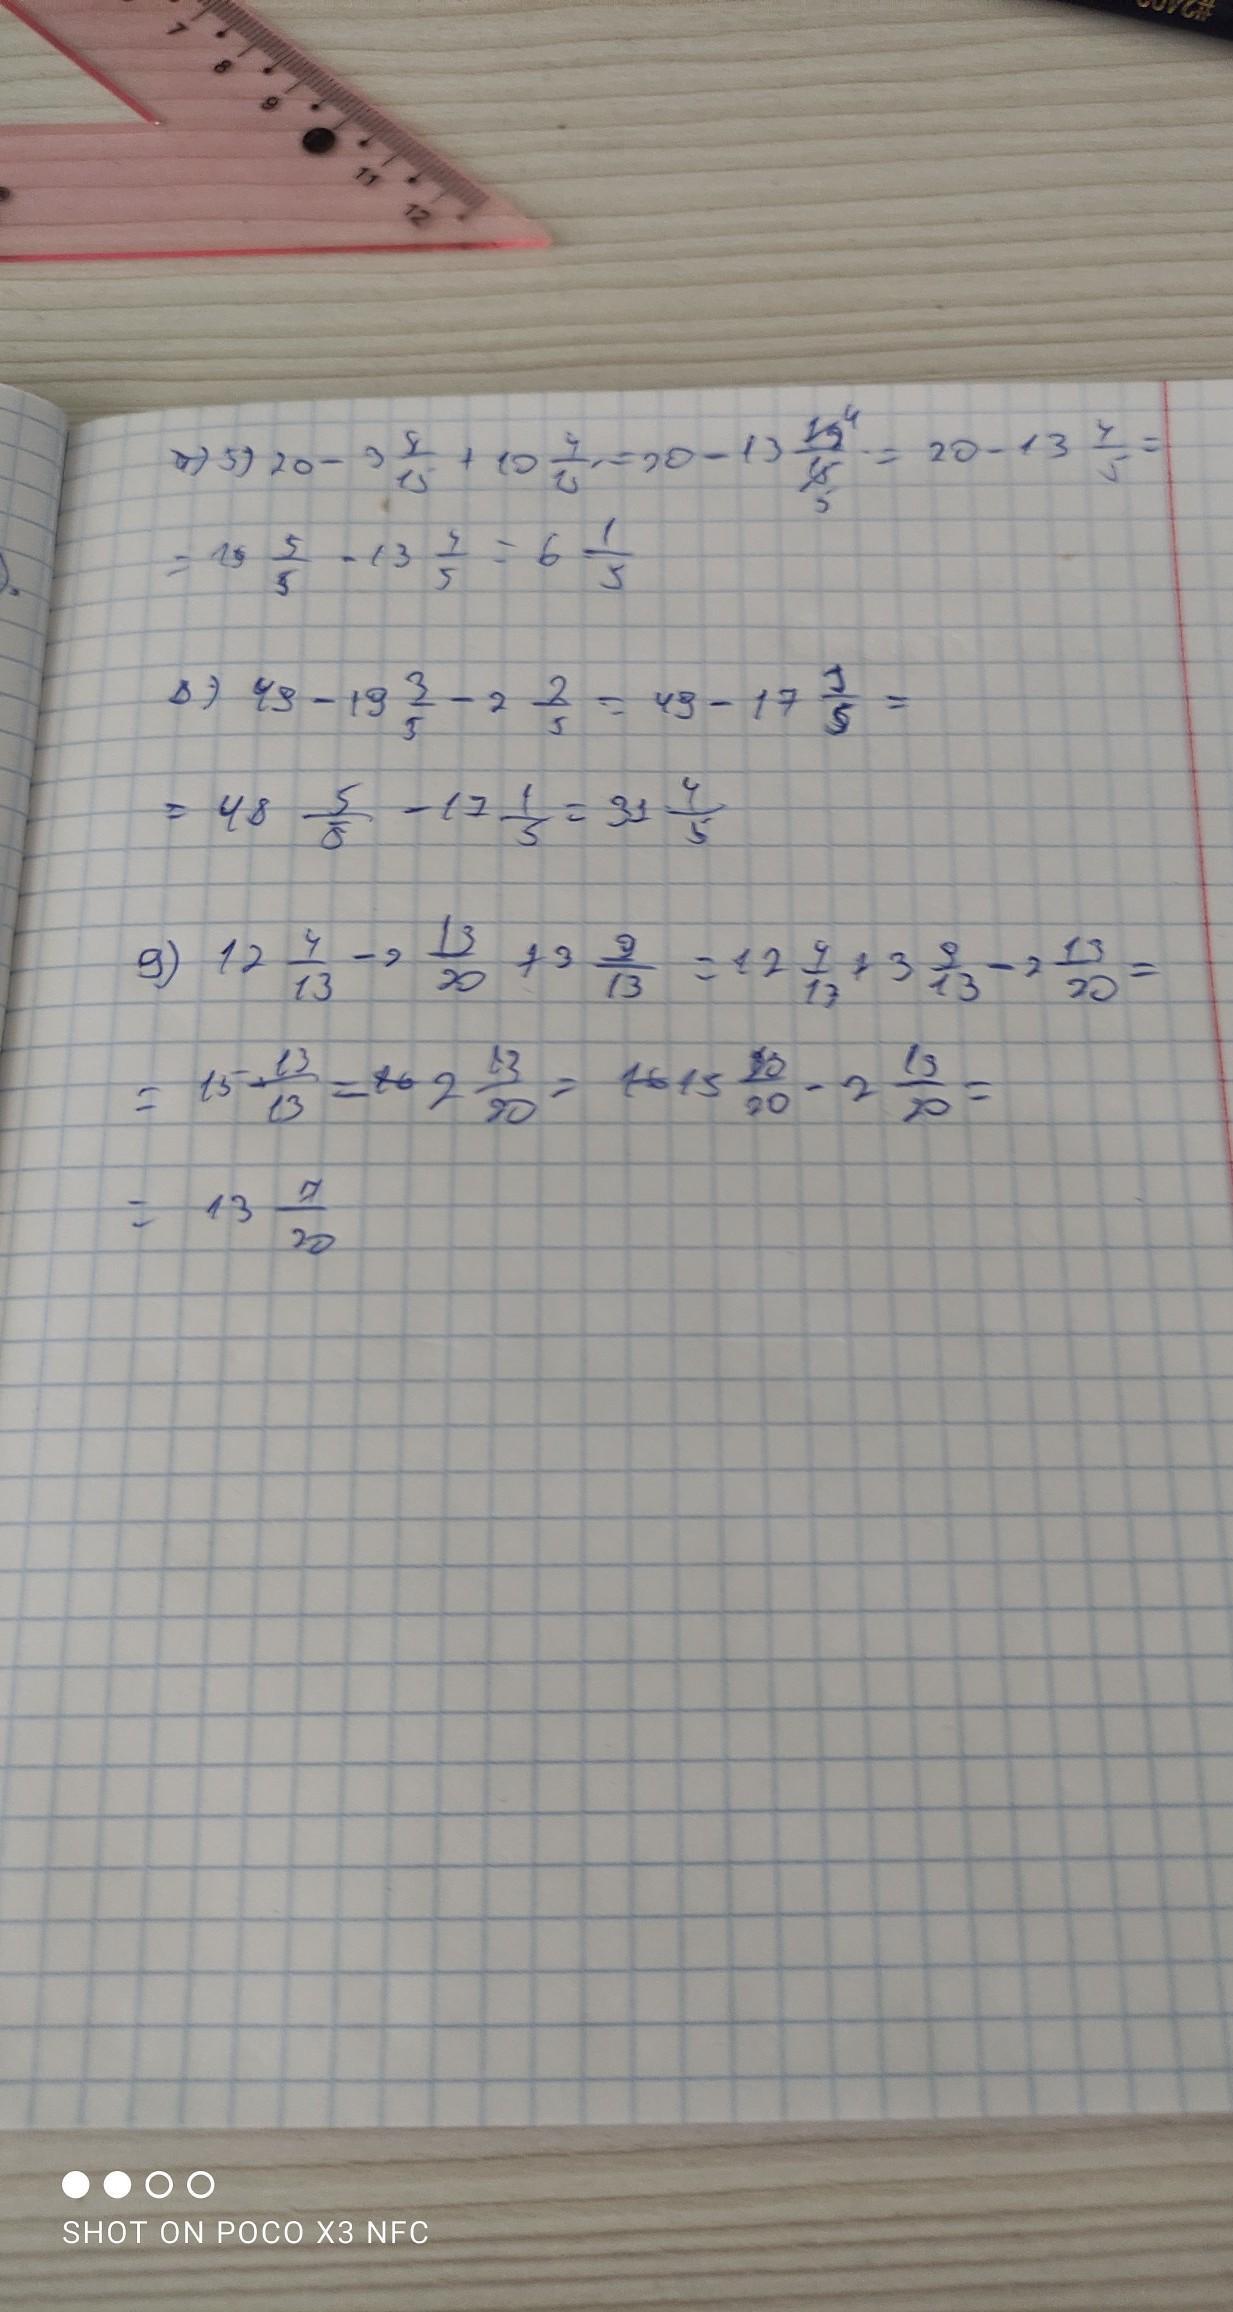 7
8
9
11
12
5) 20 - 3 8/15 + 10 4/15 = 20 - 13 12/15 4/5 = 20 - 13 4/5 =
= 19 5/5 - 13 4/5 = 6 1/5
в) 49 - 19 3/5 - 2 2/5 = 49 - 17 1/5 =
= 48 5/5 - 17 1/5 = 31 4/5
д) 12 4/13 - 2 13/20 + 3 9/13 = 12 4/13 + 3 9/13 - 2 13/20 =
= 15 13/13 = 2 13/20 = 15 20/20 - 2 13/20 =
= 13 7/20
SHOT ON POCO X3 NFC